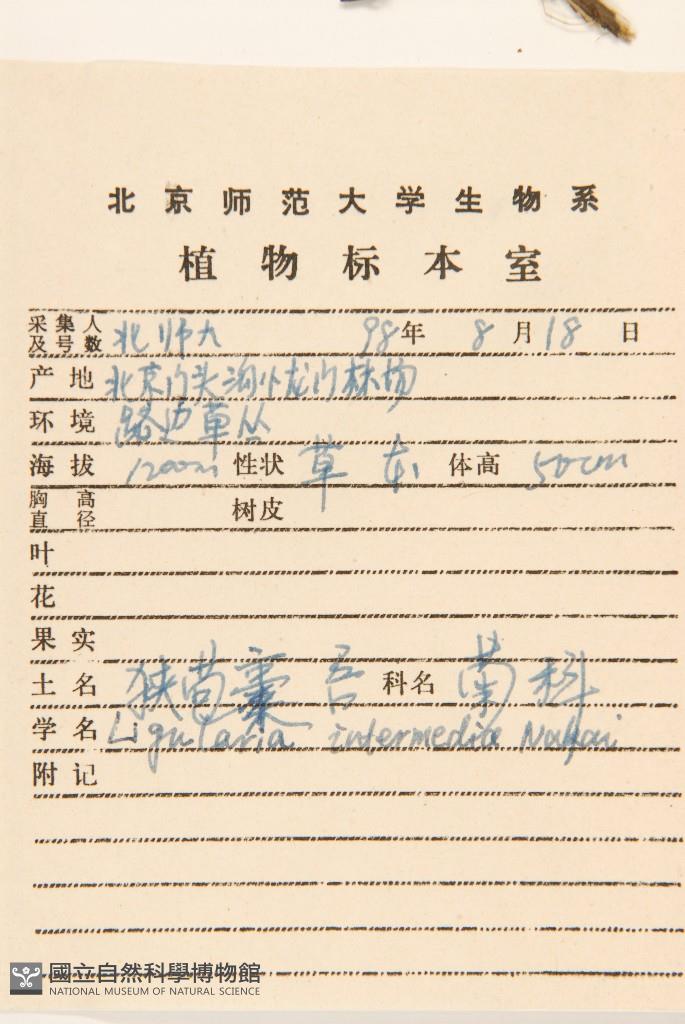 北京师范大学生物系
植物标本室
采集人及号数 北师大 98年 8月18日
产地 北京门头沟小龙门林场
环境 路边草丛
海拔 1200m 性状 草本 体高 50cm
胸高直径 树皮
叶
花
果实
土名 狭苞橐吾 科名 菊科
学名 Ligularia intermedia Nakai
附记
國立自然科學博物館
NATIONAL MUSEUM OF NATURAL SCIENCE